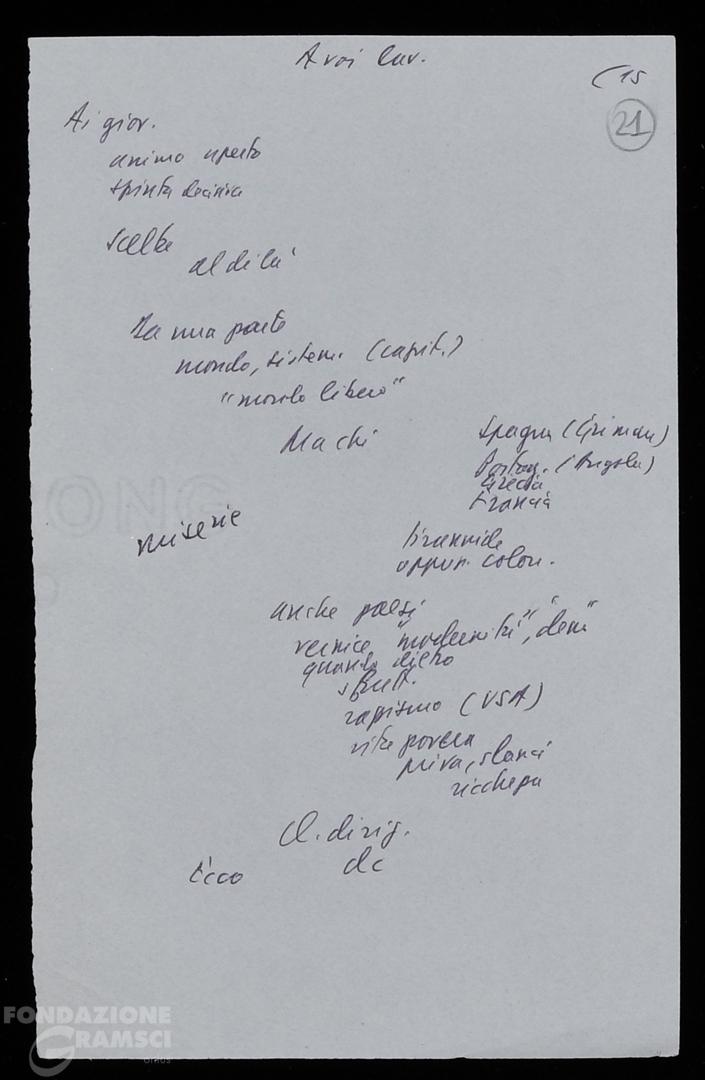 A voi lav.
(15
21
Ai giov.
animo aperto
spinta decisiva
Scelte
al di là
Da una parte
mondo, sistem. (capit.)
"mondo libero"
Ma chi
Spagna (Grimau)
Portog. (Angola)
Grecia
Francia
miserie
tirannide
oppur. colon.
anche paesi
vernice "modernità", "dem"
quanto dietro
sfrutt.
razzismo (USA)
vita povera
priva, slanci
ricchezza
Cl. dirig.
Ecco dc
ONG
FONDAZIONE
GRAMSCI
onlus